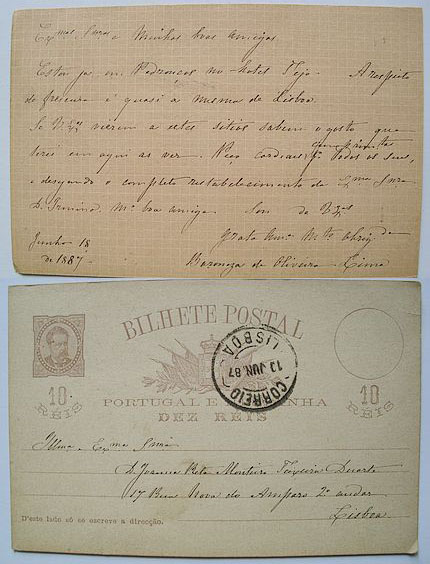 Ex.mas Snr.as e Minhas boas amigas
Estou ja em Pedrouços no hotel Tejo A respeito
de frescura é quasi a mesma de Lisboa.
Se V. Ex.as vierem a estes sitios sabem o gosto que
terei em aqui as ver. Peço cordiaes cumprimentos p.a todos os seus,
e desejando o completo restabelecimento da Ex.ma Snra
D. M.a boa amiga. Sou de V. Ex.as
Junho 18
de 1887
Grata Am.a M.to Obrig.da
Baroneza de Oliveira Lima
BILHETE POSTAL
10
RÉIS
CORREIO
LISBOA
JUN. 87
PORTUGAL E HESPANHA
DEZ RÉIS
10
RÉIS
Illma e Ex.ma Snra
D. Joanna Rita Monteiro Teixeira Duarte
17 Rua Nova do Amparo 2º andar
Lisboa
D'este lado só se escreve a direcção.